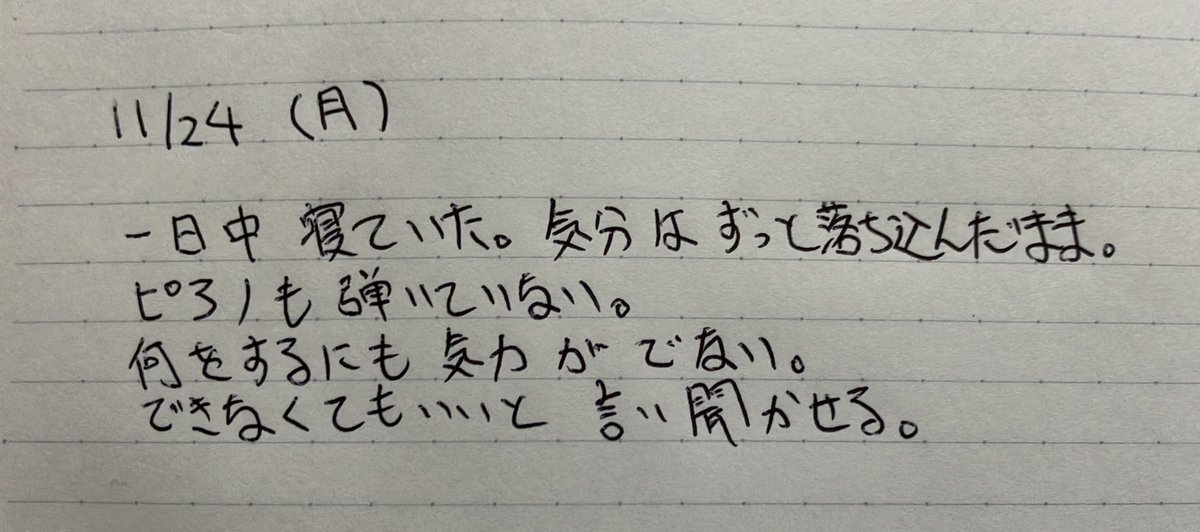 11/24 (月)
一日中 寝ていた。気分は ずっと落ち込んだまま。
ピアノも 弾いていない。
何をするにも 気力が でない。
できなくてもいいと 言い聞かせる。